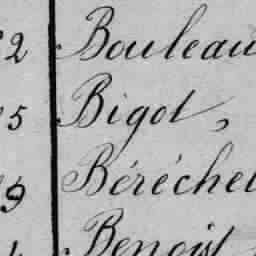 2 Bouleau
5 Bigot,
9 Béréchet
Benoist